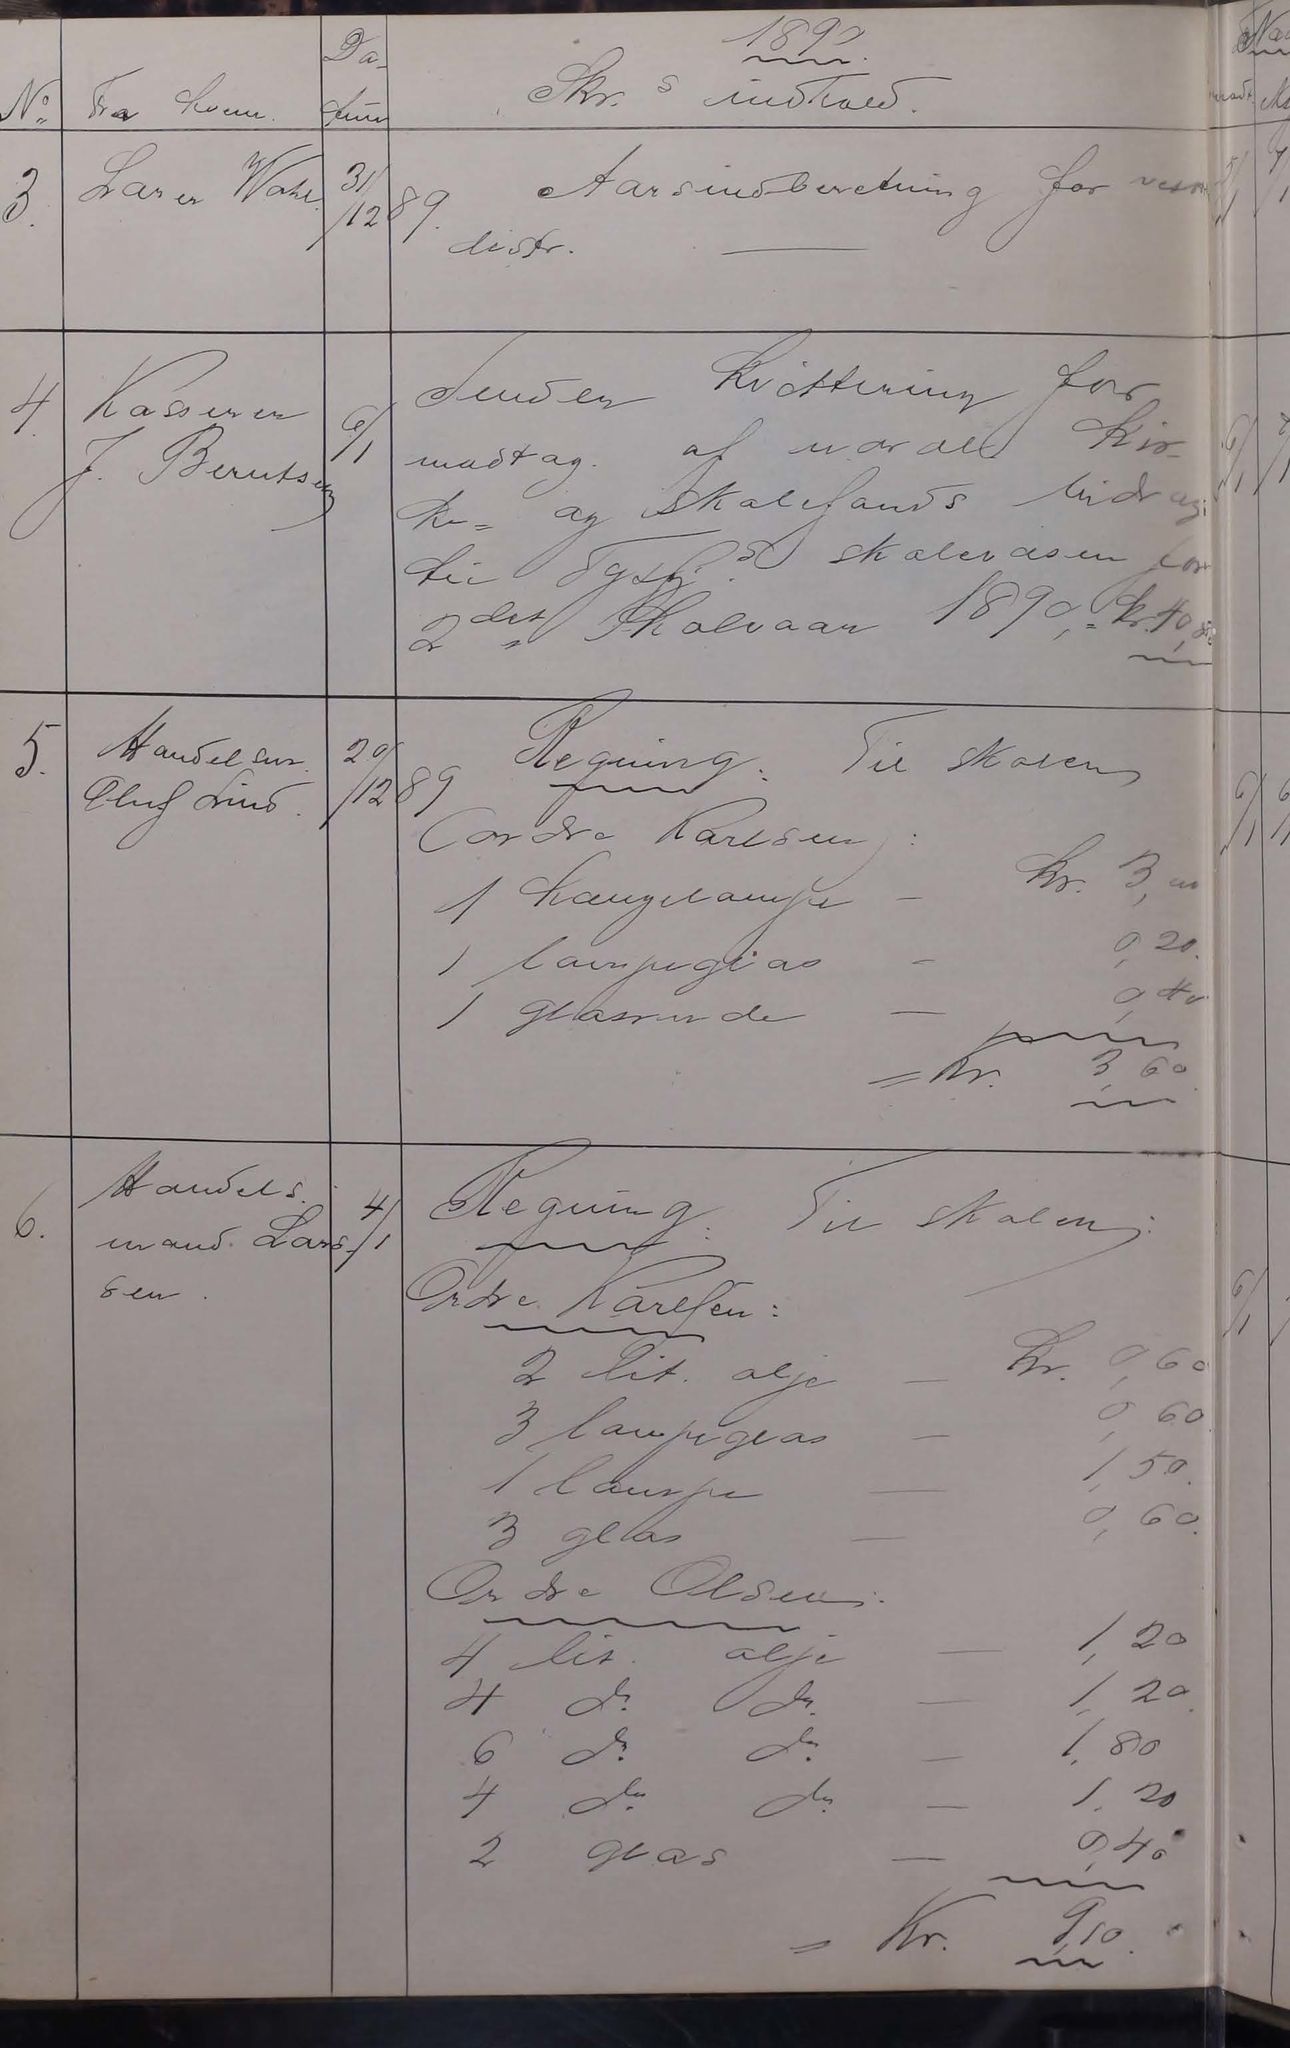 1890
No Fra hvem. Da-
tum Skr.s indhold.
3. Lærer Wahl. 31/12 89. Aarsindberetning for
distr.
4. Kasserer
J. Berntsen 6/1 Sender kvittering for
modtag. af norske Kir-
ke- og skolefonds bidrag
til Tysfj.s skolevæsen for
2det skoleaar 1890, = kr. 40,
5. Handelsm.
Oluf Lind. 20/12 89 Regning. Til skolen
(ordre Karlsen):
1 hængelampe — kr. 3,00
1 lampeglas — 0,20.
1 glasrude — 0,40
= kr. 3,60.
6. Handels-
mand Lars-
sen. 4/1 Regning. Til skolen:
Ordre Karlsen:
2 lit. olje — kr. 0,60
3 lampeglas — 0,60
1 lampe — 1,50.
3 glas — 0,60.
Ordre Olsen:
4 lit. olje — 1,20
4 do. do. — 1,20.
6 do. do. — 1,80
4 do. do. — 1,20
2 glas — 0,40
= Kr. 9,10.
6/1
6/1
6/1